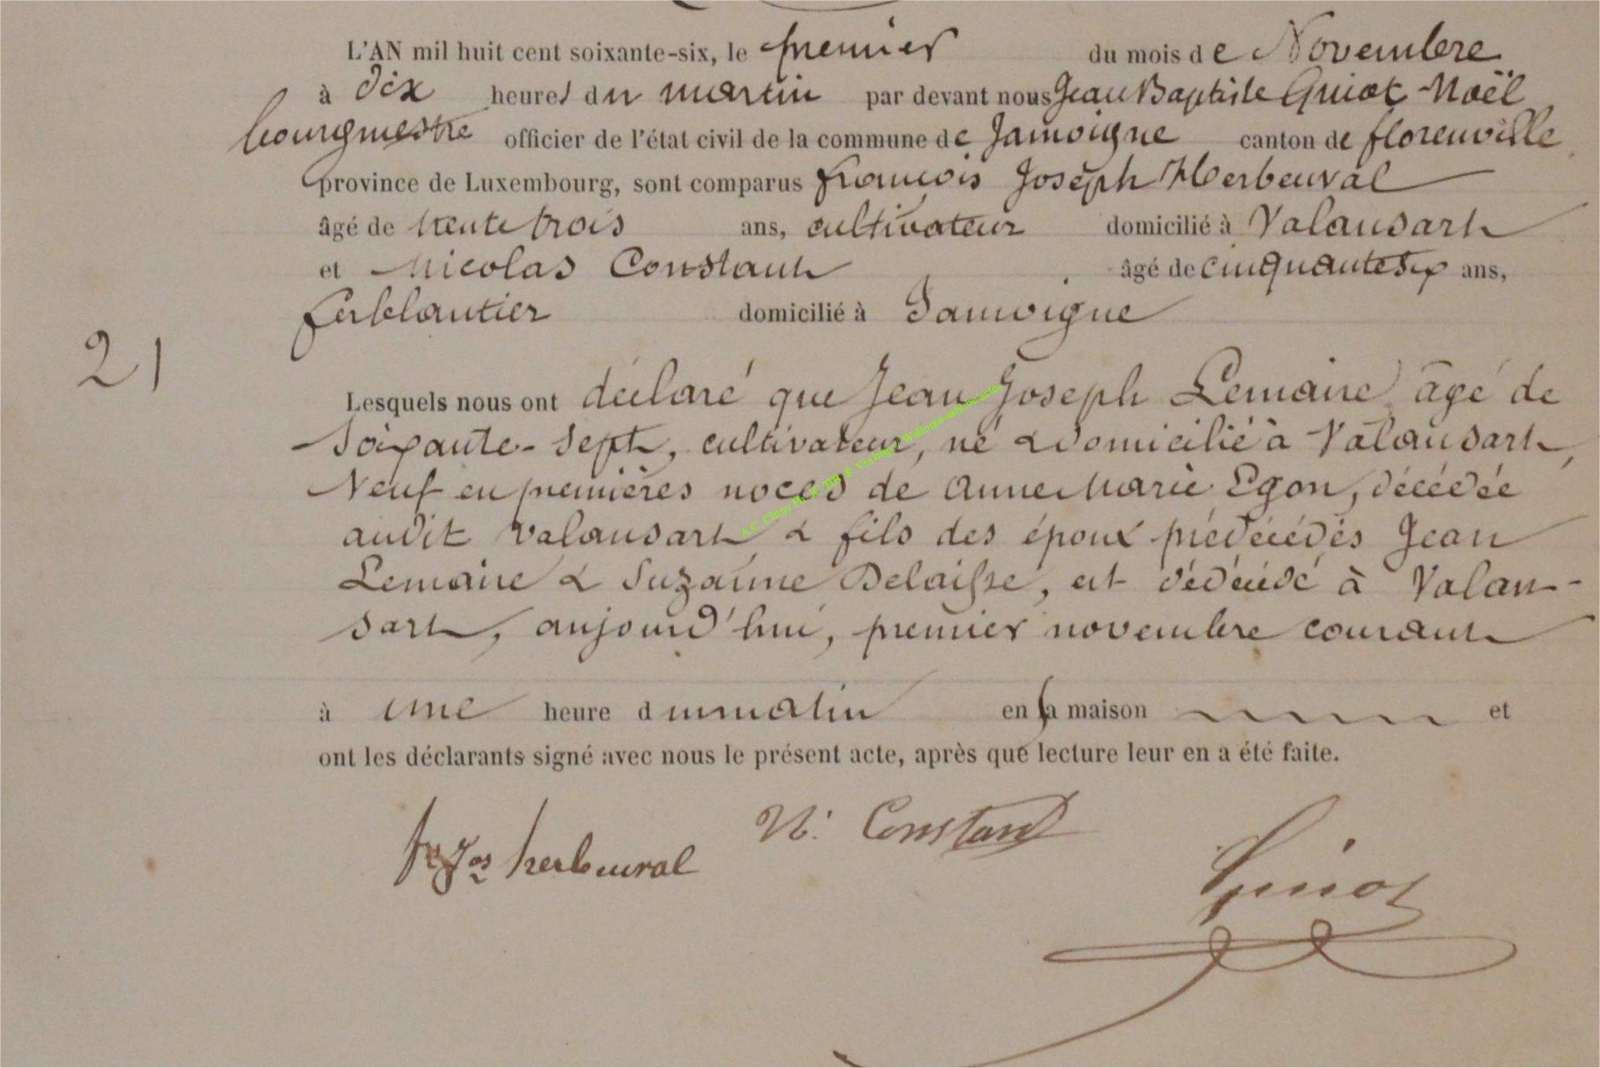 L'AN mil huit cent soixante-six, le premier du mois de Novembre
à dix heures du martin par devant nous Jean Baptiste Guiot-Noël
bourgmestre officier de l'état civil de la commune de Jamoigne canton de florenville
province de Luxembourg, sont comparus françois Joseph Herbeuval
âgé de trente trois ans, cultivateur domicilié à Valansart
et Nicolas Constant âgé de cinquante six ans,
ferblantier domicilié à Jamoigne
21
Lesquels nous ont déclaré que Jean Joseph Lemaire âgé de
soixante-sept, cultivateur, né & domicilié à Valansart,
Veuf en premières noces de Anne Marie Egon, décédée
audit Valansart & fils des époux prédécédés Jean
Lemaire & Suzanne Delaisse, est décédé à Valan-
sart, aujourd'hui, premier novembre courant
à une heure du matin en sa maison et
ont les déclarants signé avec nous le présent acte, après que lecture leur en a été faite.
frçs Jos herbeuval N. Constant Guiot